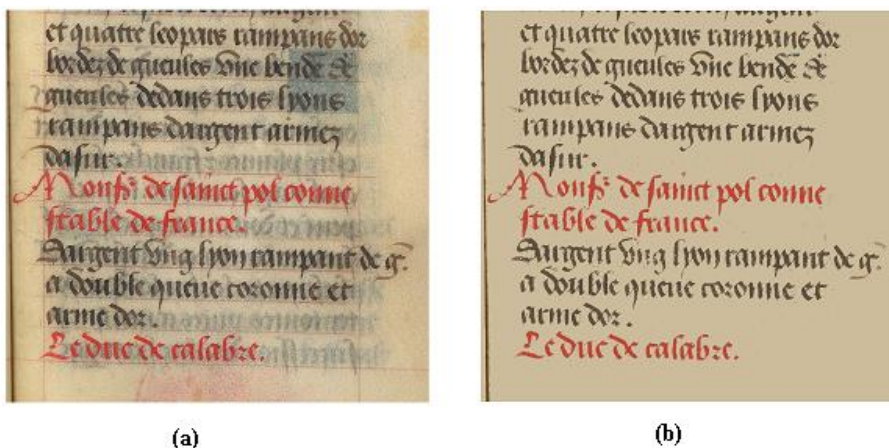 et quatre leopars rampans dor
bordez de gueules vne bende de
gueules dedans trois lyons
rampans dargent armez
dasur.
Monsr de sainct pol conne
stable de france.
Dargent vng lyon rampant de g.
a double queue coronne et
arme dor.
Le duc de calabre.
et quatre leopars rampans dor
bordez de gueules vne bende de
gueules dedans trois lyons
rampans dargent armez
dasur.
Monsr de sainct pol conne
stable de france.
Dargent vng lyon rampant de g.
a double queue coronne et
arme dor.
Le duc de calabre.
(a)
(b)